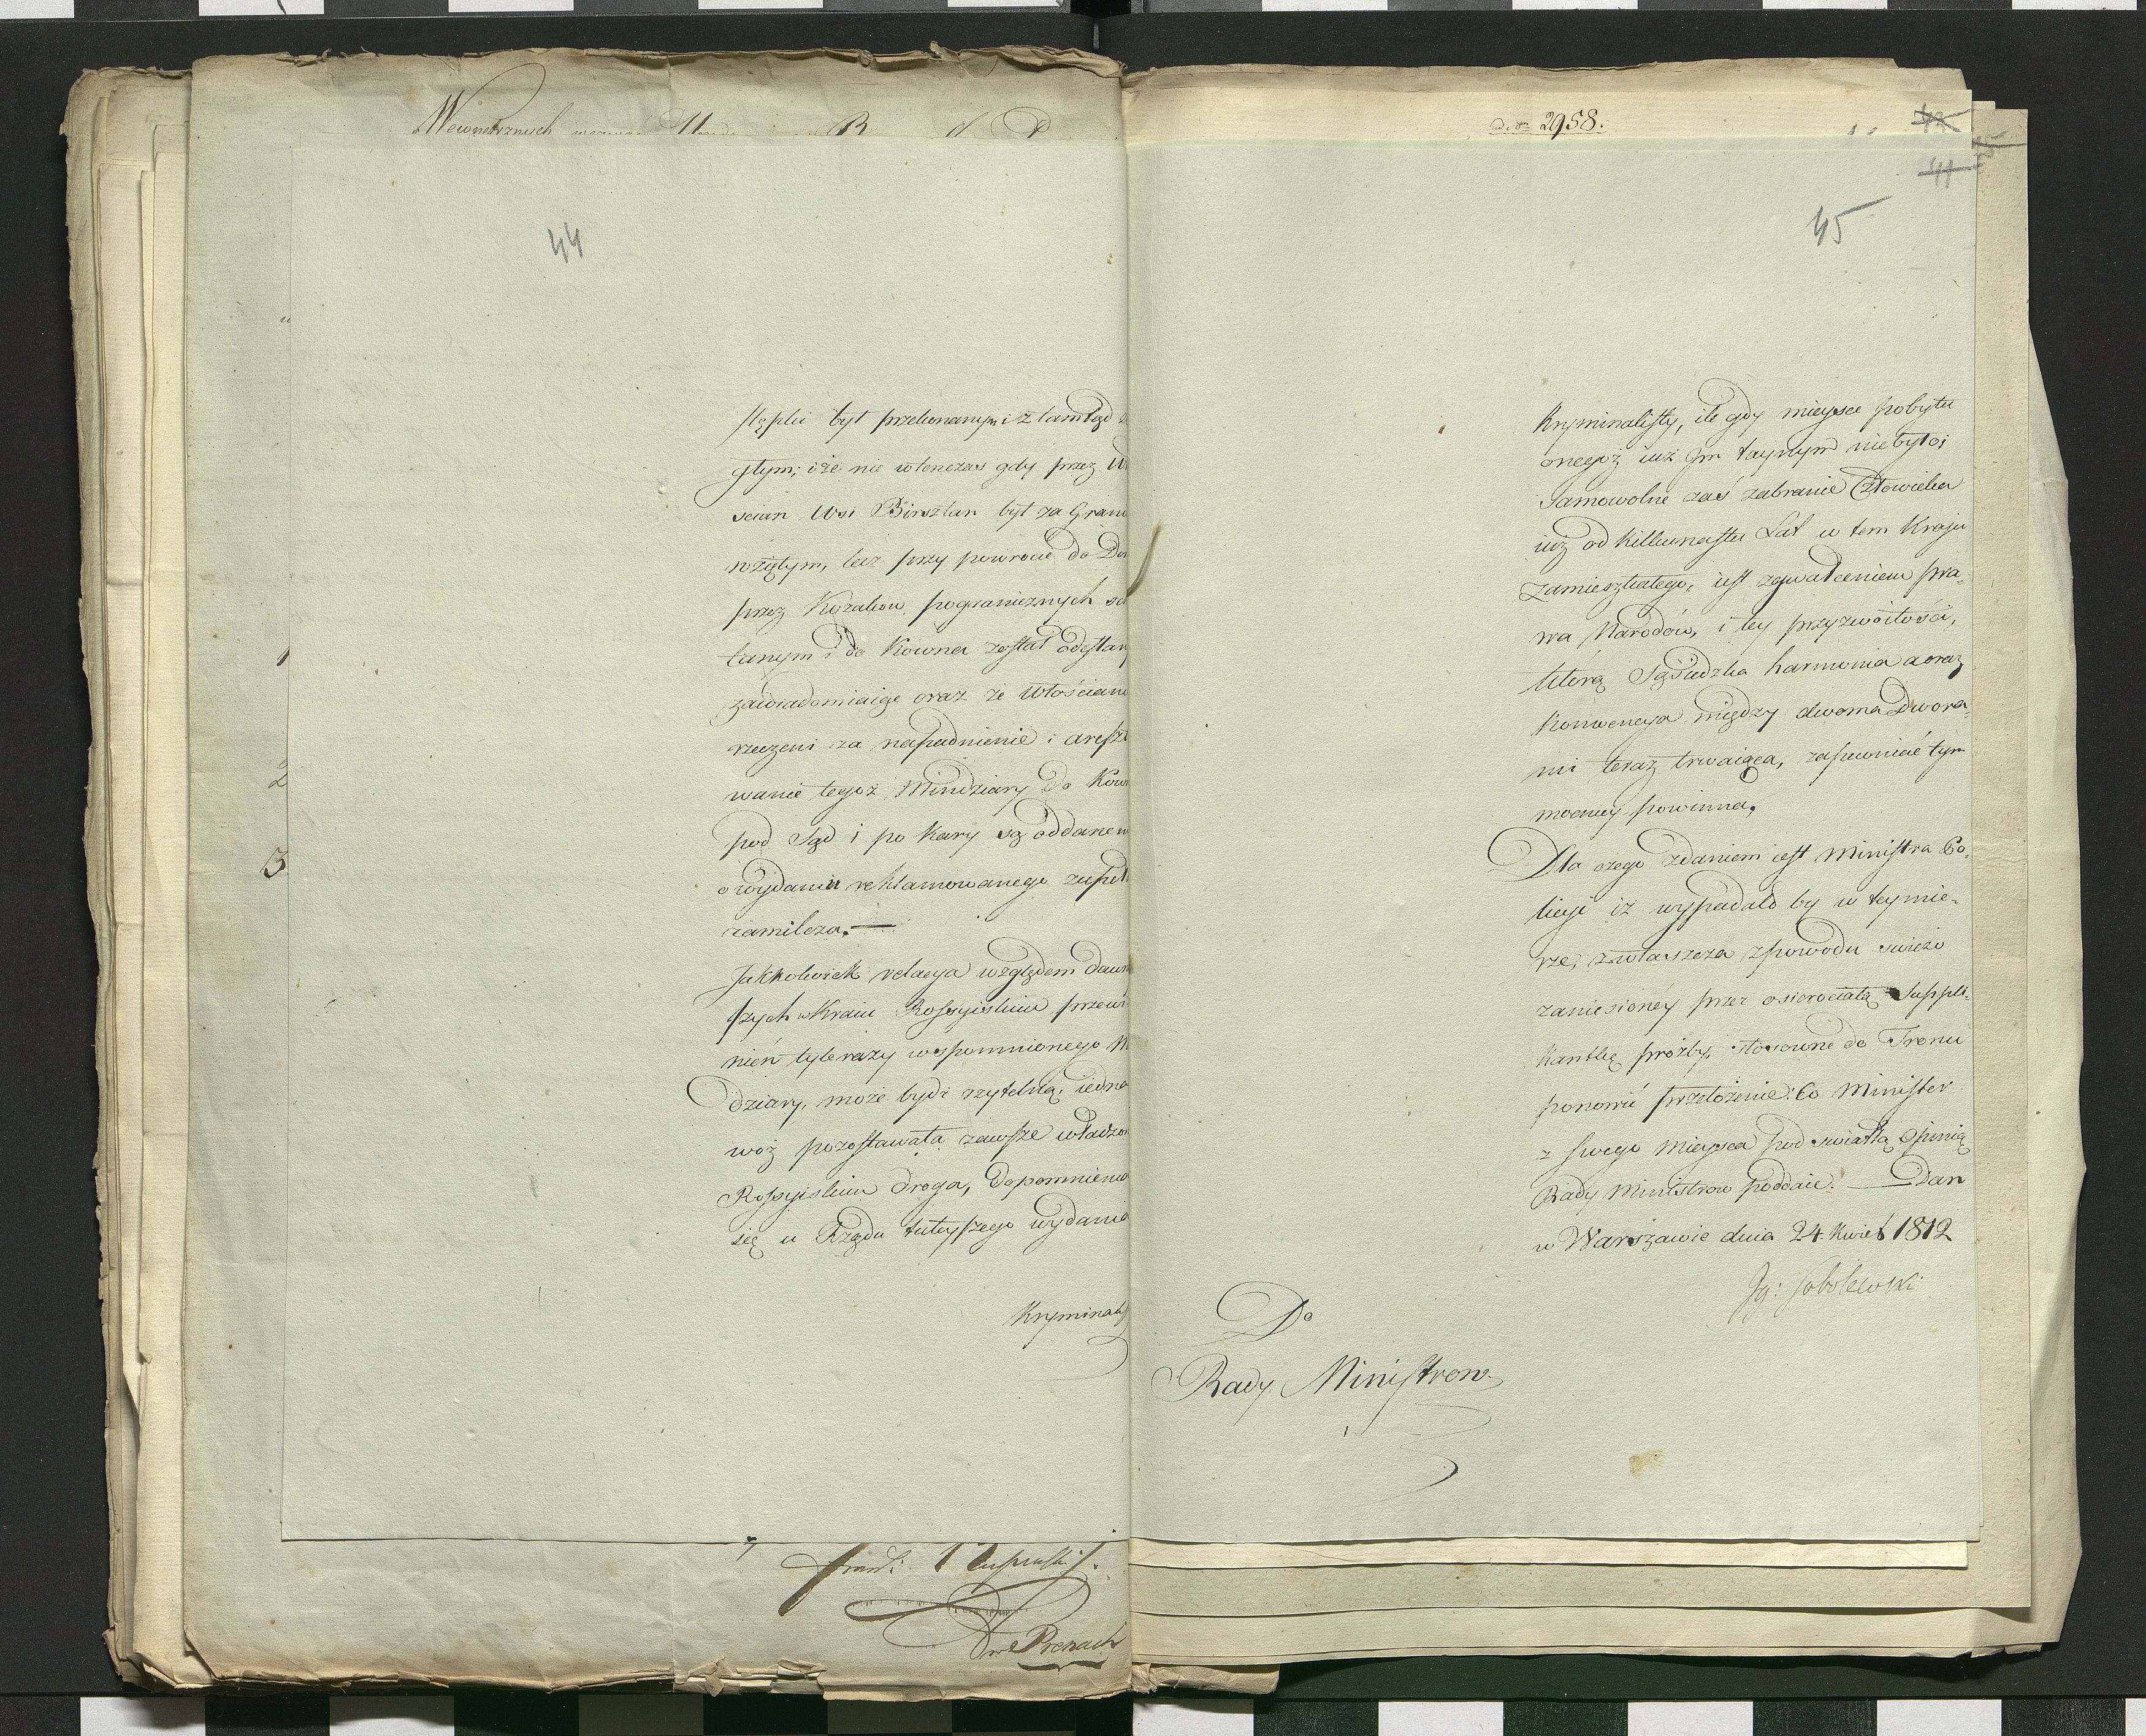 Wewnetrznych
44
stępki był przekonanym i z tamtąd
głym; iże nie wtenczas gdy przez W
scian Wsi Birsztan był za Grani
wziętym, lecz przy powrocie do Do
przez Kozakow pogranicznych sch
tanym i do Kowna został odesłan
zawiadomiaiąc oraz że Włościani
rzeczeni za napadnienie i areszt
wanie tegoż Mindziary do Kow
pod Sąd i po Kary są oddane
o wydaniu reklamowanego zupeł
zamilcza.—
Jakkolwiek relacya względem dawn
szych w Kraiu Rossyiskim przewi
nień tylerazy wspomnionego M
dziary, może bydź rzytelną, iedna
woż pozostawała zawsze władzom
Rossyiskim droga, dopomnienia
się u Rządu tuteyszego wydania
Kryminali
1
2
3
2958.
45
Kryminalisty, ile gdy mieysce pobytu
onegoż iuż Jm taynym niebyło;
Samowolne zaś zabranie Człowieka
iuż od killkunastu Lat w tem Kraju
zamieszkałego, iest zgwałceniem pra-
wa Narodów, i tey przyzwoitości,
którą Sąsiedzka harmonia a oraz
Konwencya między dwoma Dwora-
mi teraz trwaiąca, zapewniać tym
mocniey powinna.
Dla czego zdaniem iest Ministra Po-
licyi iż wypadało by w teymie-
rze, zwłaszcza z powodu swieżo
zaniesionéy przez osierociałą Suppli-
kantkę prośby, stosowne do Tronu
ponowić przełożenie: Co Minister
z swego Mieysca pod swiatłą Opinią
Rady Ministrow poddaie. — Dan
w Warszawie dnia 24. Kwiet 1812
Ig: Sobolewski
Do
Rady Ministrow